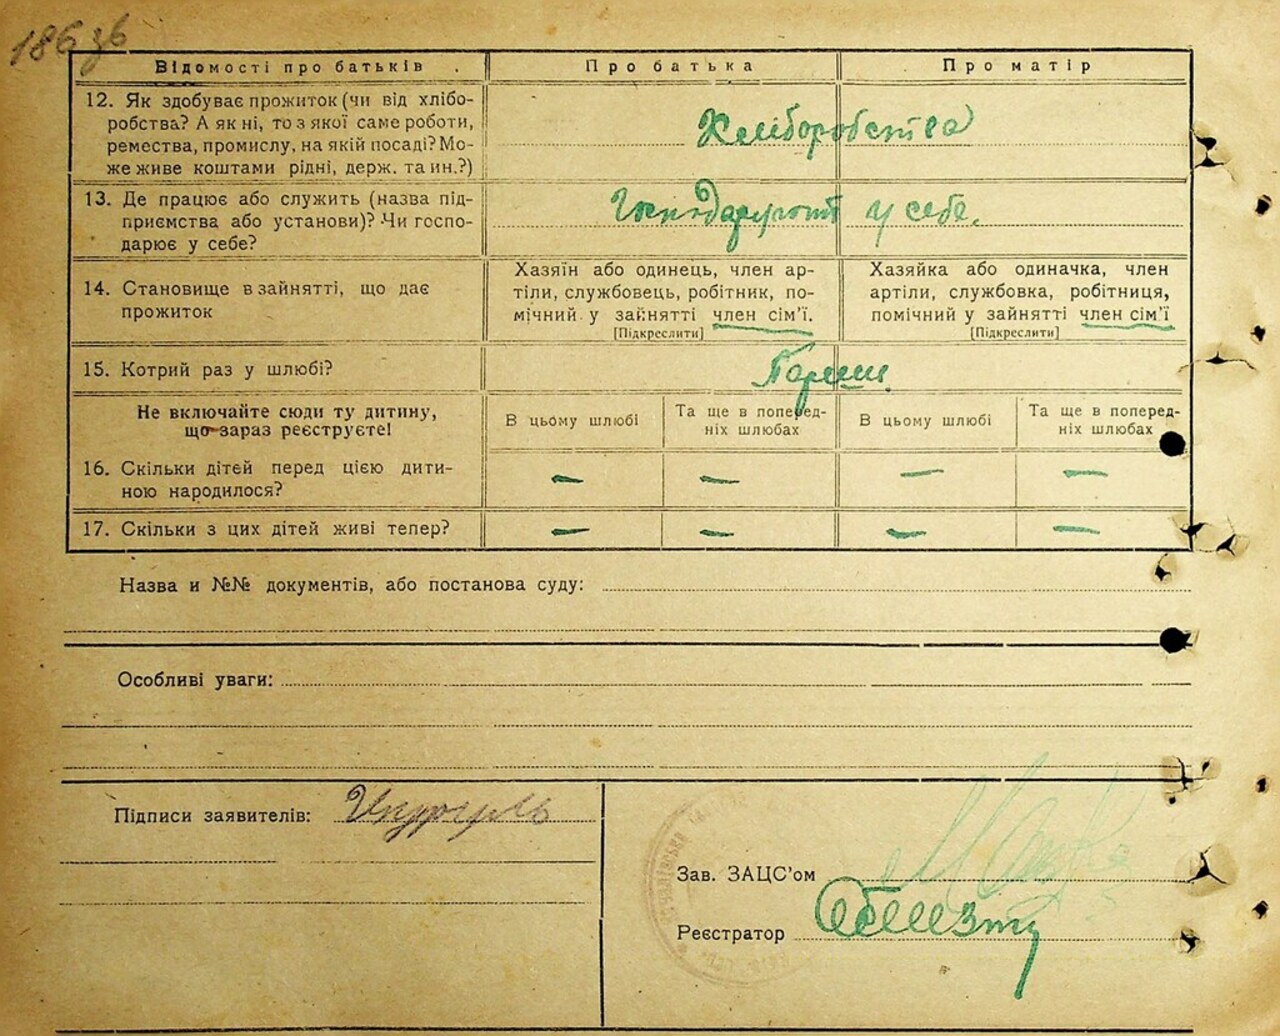 186 зв
Відомості про батьків
Про батька
Про матір
12. Як здобуває прожиток (чи від хлібо-
робства? А як ні, то з якої саме роботи,
ремества, промислу, на якій посаді? Мо-
же живе коштами рідні, держ. та ин.?)
Хліборобства
13. Де працює або служить (назва під-
приємства або установи)? Чи госпо-
дарює у себе?
Господарують у себе.
14. Становище в зайнятті, що дає
прожиток
Хазяїн або одинець, член ар-
тіли, службовець, робітник, по-
мічний у зайнятті член сім'ї.
[Підкреслити]
Хазяйка або одиначка, член
артіли, службовка, робітниця,
помічний у зайнятті член сім'ї
[Підкреслити]
15. Котрий раз у шлюбі?
Не включайте сюди ту дитину,
що зараз реєструєте!
В цьому шлюбі
Та ще в поперед-
ніх шлюбах
В цьому шлюбі
Та ще в поперед-
ніх шлюбах
16. Скільки дітей перед цією дити-
ною народилося?
— — — —
17. Скільки з цих дітей живі тепер?
— — — —
Назва и №№ документів, або постанова суду:
Особливі уваги:
Підписи заявителів:
Зав. ЗАЦС'ом
Реєстратор